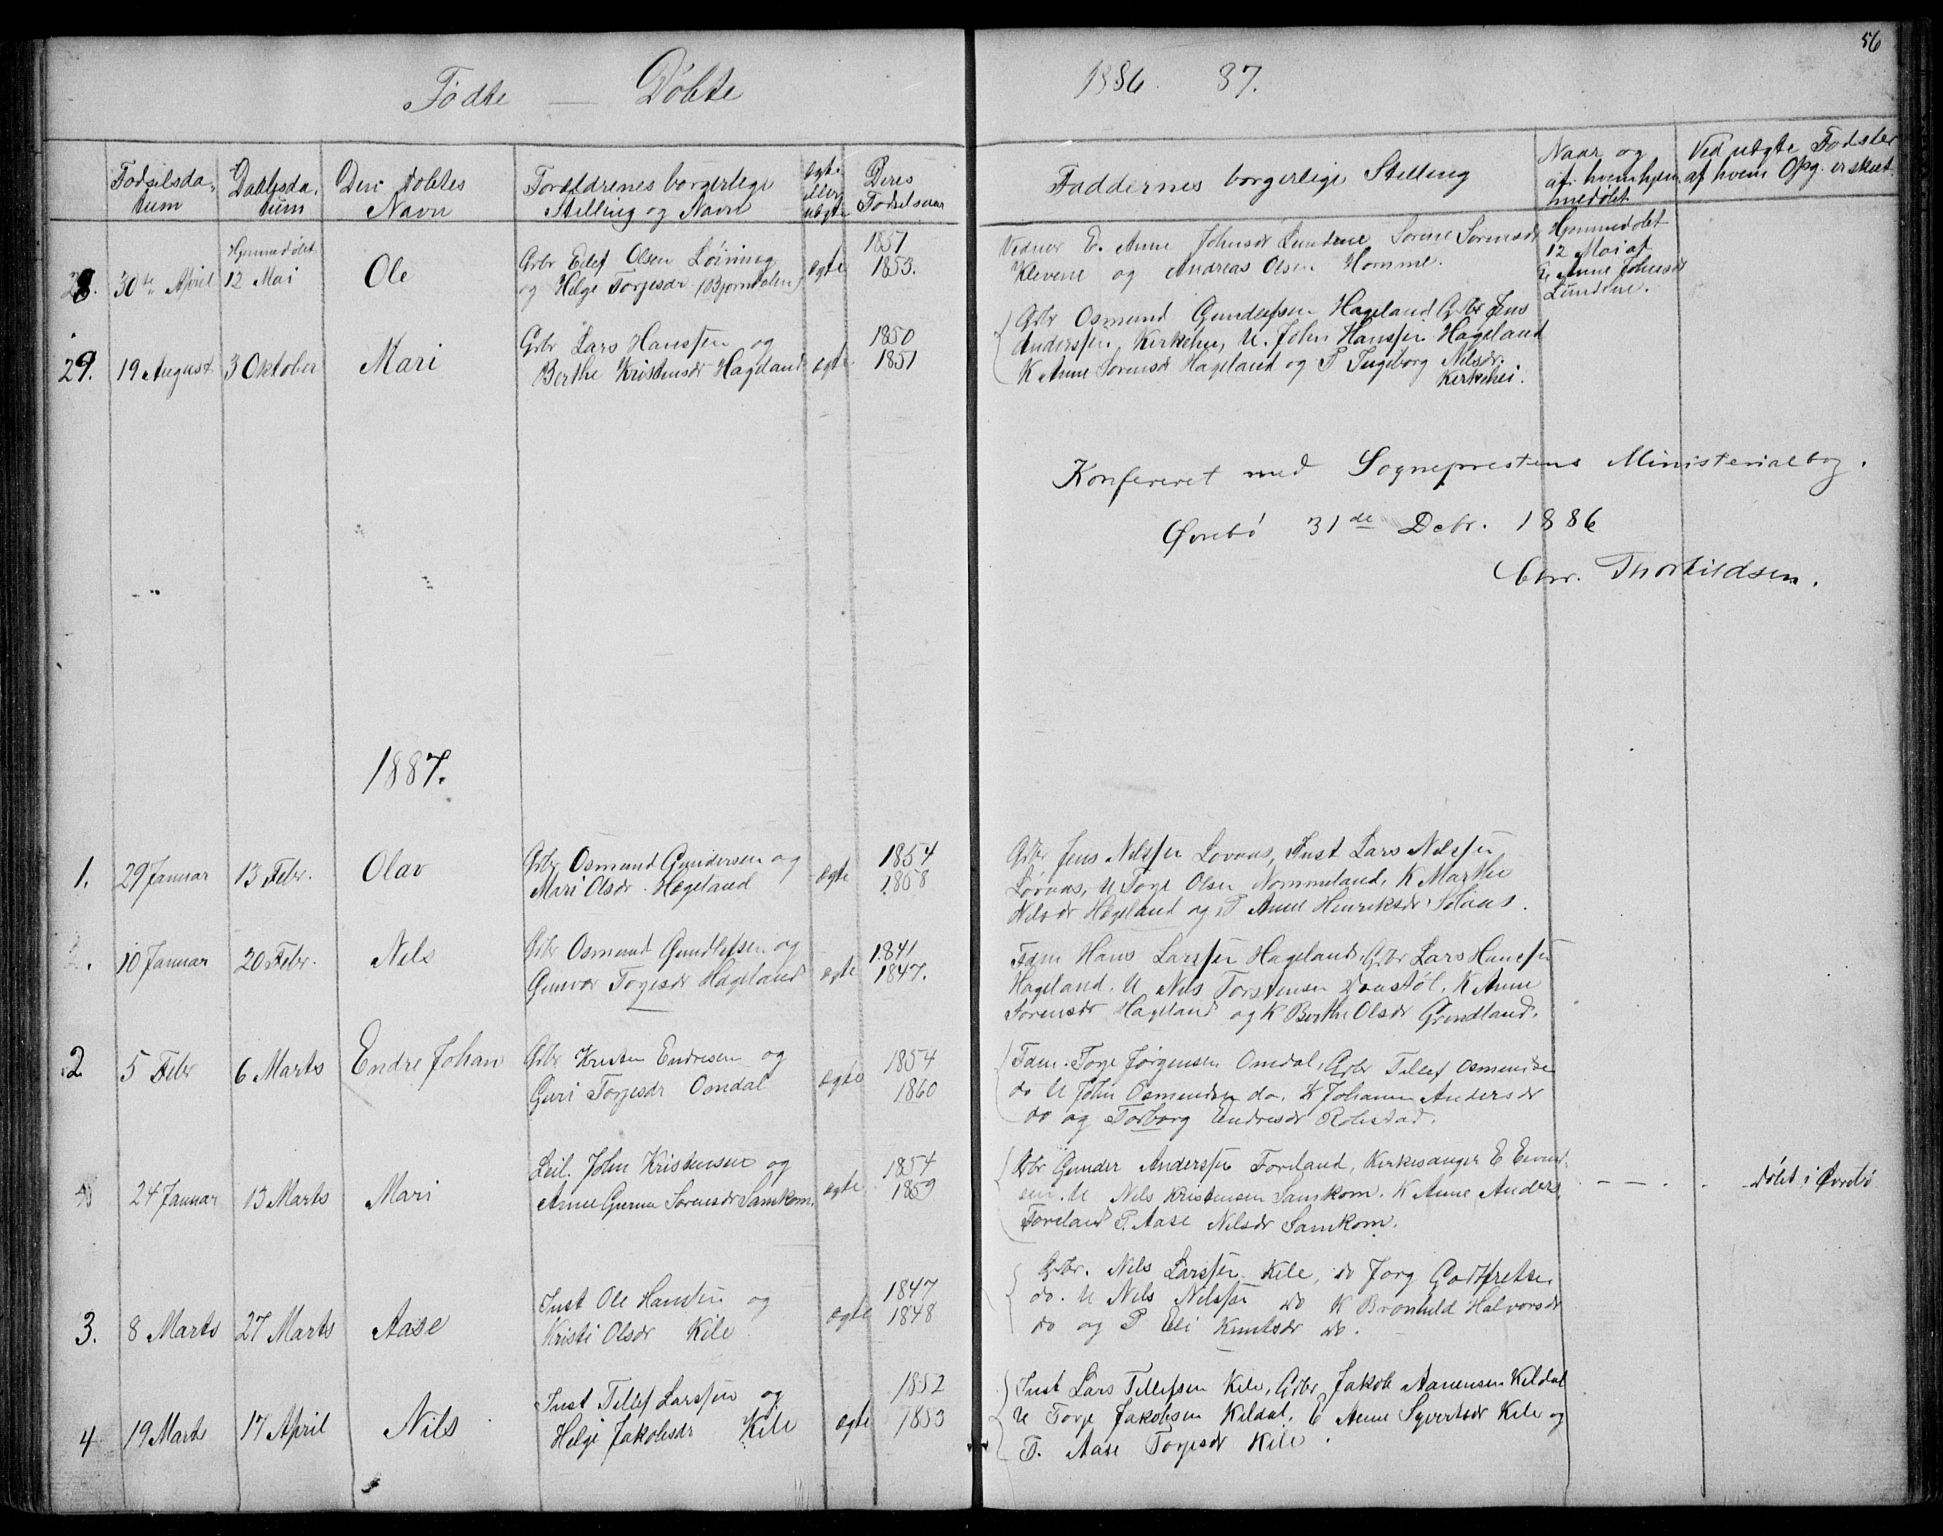 56
Fødte — Døbte
1886. 87.
Fødselsda-
tum
Daabsda-
tum
Den Døbtes
Navn
Forældrenes borgerlige
Stilling og Navn
ægte
eller
uægte
Deres
Fødselsaar
Faddernes borgerlige Stilling
Naar og
af hvem hjem
medøbt
Ved uægte Fødsler
af hvem Opg. er skeet
28. 30te April
Hjemmedøbt
12 Mai
Ole
Gbr Edef Olsen Løining
og Helge Torjesdr (Bjørndalen)
ægte
1851
1853.
E. Anne Johnsdr Lundene Sørine Sørensdr
Klevene og Andreas Olsen Homme.
Hjemmedøbt
12 Mai af
E Anne Johnsdr
Lundene.
29. 19 August 3 Oktober Mari
Gbr Lars Hanssen og
Berthe Kristensdr Hageland
ægte
1850
1851
Gbr Osmund Gundersen Hageland Gbr Jens
Anderssen, Kirkehei, U. John Hanssen Hageland
K Anne Sørensdr Hageland og P Ingeborg Nilsdr.
Kirkehei.
Konfereret med Sogneprestens Ministerialbog.
Øvrebø 31de Debr. 1886
Chr. Thorkildsen.
1887.
1. 29 Januar 13 Febr. Olav
Gbr Osmund Gundersen og
Mari Olsdr. Hægeland
ægte
1854
1858
Gbr Jens Nilssen Lovaas, Inst Lars Nilssen
Lovaas, U Torje Olsen Nommeland, K Marthe
Nilsdr Hægeland og P Anne Henriksdr Solaas.
2. 10 Januar 20 Febr. Nils
Gbr Osmund Gundersen og
Gunvor Torjesdr Hageland
ægte
1841
1847.
Fdm Hans Larssen Hageland, Gbr Lars Hanssen
Hageland. U, Nils Torstensen K Anne
Sorensdr Hageland og K Berthe Olsdr Grindland.
2 5 Febr 6 Marts Endre Johan
Gbr Kristen Endresen og
Guri Torjesdr Omdal
ægte
1854
1860
Fdm. Torje Jørgensen Omdal, Gbr Tellef Osmundsen
do U John Osmundsen do. K Johanne Andersdr
do og Torborg Endresdr Robstad.
24 Januar 13 Marts Mari
Leil. John Kristensen og
Anne Gurine Sorensdr Samkom.
ægte
1854
1859
Gbr Gunder Anderssen Foreland, Kirkesanger E Eivind-
sen. U Nils Kristensen Samkom. K Anne Anders
Foreland P. Aase Nilsdr Samkom.
— — . . Døbt i Øvrebø
3. 8 Marts 27 Marts Aase
Inst Ole Hanssen og
Kristi Olsdr Kile
ægte
1847
1848
Gbr. Nils Larssen Kile, do Jorg Godtfretsen
do. U Nils Nilssen do K Bronhild Halvorsdr
do og P Eli Knutsdr do.
4 19 Marts 17 April Nils
Inst Tellef Larssen og
Helge Jakobsdr Kile
ægte
1852
1853
Inst Lars Tellefsen Kile, Gbr Jakob Aanensen Kildal
U Torje Jakobsen Kildal. E Anne Syvertsdr Kile og
P. Aase Torjesdr Kile.